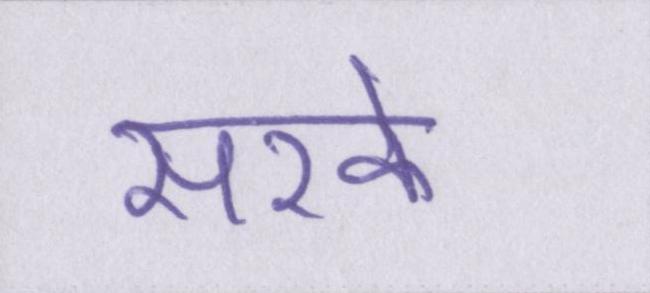 सरके